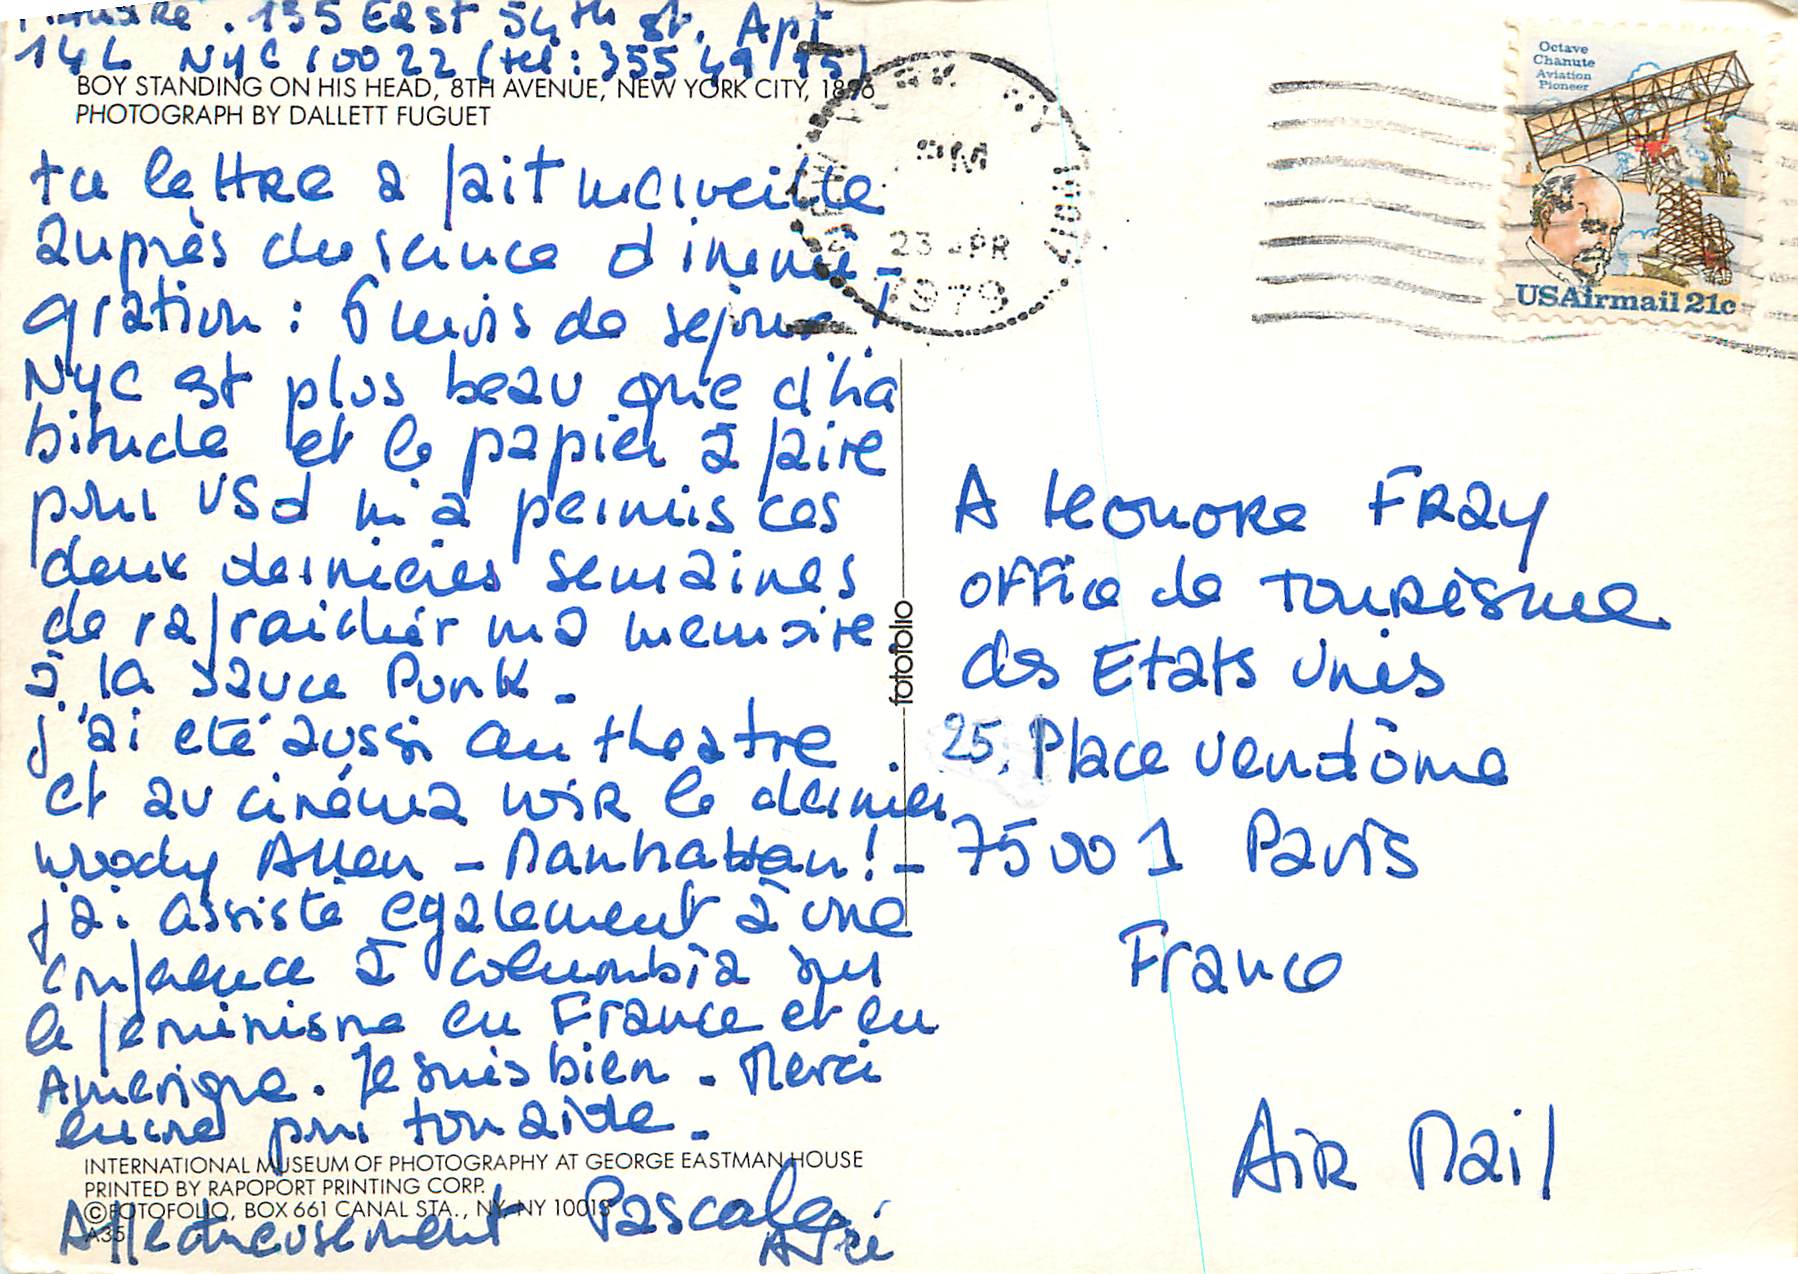 135 East 54th st. Apt
14L NYC 10022 (tel: 355 49/95)
BOY STANDING ON HIS HEAD, 8TH AVENUE, NEW YORK CITY, 1896
PHOTOGRAPH BY DALLETT FUGUET
ta lettre a fait merveille
auprès du service d'immi-
gration : 6 mois de séjour !
NYC est plus beau que d'ha
bitude et le papier à faire
pour VSD m'a permis ces
deux dernières semaines
de rafraichir ma memoire
à la sauce Punk -
j'ai eté aussi au theatre
et au cinéma voir le dernier
woody Allen - Manhattan ! -
j'ai assisté egalement à une
conference à columbia sur
le feminisme en France et en
Amerique. Je suis bien - Merci
encore pour ton aide -
INTERNATIONAL MUSEUM OF PHOTOGRAPHY AT GEORGE EASTMAN HOUSE
PRINTED BY RAPOPORT PRINTING CORP.
©FOTOFOLIO, BOX 661 CANAL STA., NY, NY 10013
A35
Affectueusement Pascale
fotofolio
PM
23 APR
1979
Octave
Chanute
Aviation
Pioneer
USAirmail 21c
A leonore FRAY
office de Tourisme
des Etats Unis
25, Place Vendôme
75001 Paris
France
Air Mail